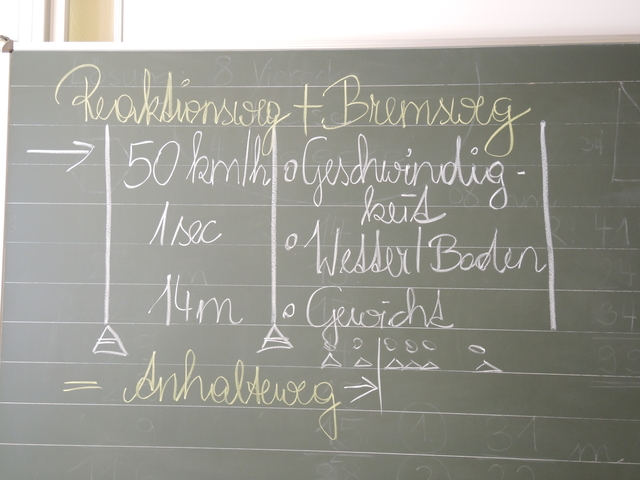 Reaktionsweg + Bremsweg
→ 50 km/h
1 sec
14 m
Geschwindig-
keit
Wetter/Boden
Gewicht
= Anhalteweg →